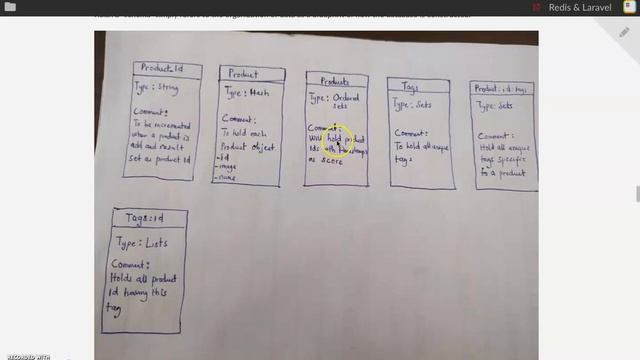 Redis & Laravel
Product_Id
Type: String
Comment:
To be incremented
when a product is
add and result
set as product Id
Product
Type: Hash
Comment:
To hold each
Product Object
-id
-image
-name
Products
Type: Ordered
Sets
Comment:
Will hold product
Ids with timestamps
as score
Tags
Type: Sets
Comment:
To hold all unique
tags
Product:id:tags
Type: Sets
Comment:
Hold all unique
tags specific
to a product
Tags:Id
Type: Lists
Comment:
Holds all product
Id having this
tag
RECORDED WITH